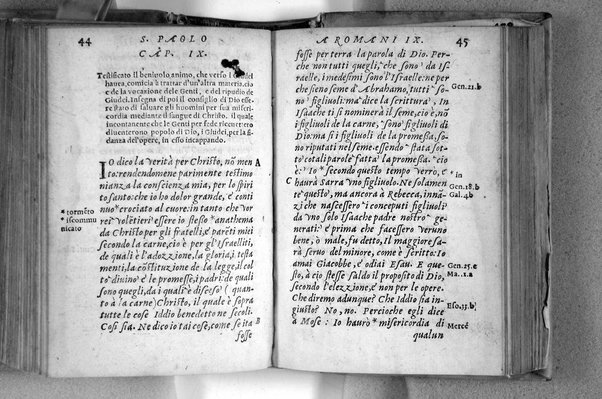 44
S. PAOLO
CAP. IX.
Testificato il beniuolo animo, che verso i Giudei
hauea, comicia à trattar d'un'altra materia, cio
è de la vocatione dele Genti, e del ripudio de
Giudei. Insegna di poi il consiglio di Dio esse-
re stato di saluare gli huomini per sua miseri
cordia mediante il sangue di Christo. il quale
incontanente che le Genti per fede riceuettero
diuenterono popolo di Dio, i Giudei, per la fi
danza del'opere, in esso incappando.
IO dico la verità per Christo, nõ men A
to: rendendomene parimente testimo
nianza la conscienza mia, per lo spiri
to santo: che io ho dolor grande, e conti
nuo crociato al cuore: in tanto che vor
*tormẽto
rei volẽtieri essere io stesso *anathema
iscommu
nicato
da Christo per gli fratelli, e parẽti miei
secondo la carne, cio è per gl'Israeliti,
de quali è l'adozzione, la gloria, i testa
menti, la cõstituzione de la legge, il col
to diuino e le promesse, i padri: de quali
sono quegli, da i quali è disceso (quan-
to à la carne) Christo, il quale è sopra
tutte le cose Iddio benedetto ne secoli.
Cosi sia. Ne dico io tai cose, come se ita B
fosse
A ROMANI IX.
45
fosse per terra la parola di Dio. Per-
che non tutti quegli, che sono da Is-
raelle, i medesimi sono l'Israelle: ne per
che sieno seme d'Abrahamo, tutti so- Gen. 21. b
no figliuoli: ma dice la scrittura, In
Isaache ti si nominerà il seme, cio è, nõ
i figliuoli de la carne, sono figliuoli di
Dio: ma si i figliuoli de la promessa, so-
no riputati nel seme. essendo stata sot-
to cotali parole fatta la promessa. *cio
è: Io *secondo questo tempo verrò, e *in
C haurà Sarra vno figliuolo. Ne solamen Gen. 18. b
te questo, ma ancora à Rebecca, innã- Gal. 4. b
zi che nascessero i conceputi figliuoli
da vno solo Isaache padre nostro ge-
nerati: e prima che facessero veruno
bene, ò male, fu detto, Il maggiore sa-
rà seruo del minore, come è scritto: Io
amai Giacobbe, e odiai Esau. E que- Gen. 25. e
sto, à cio stesse saldo il proposito di Dio, Ma. 1. a
secondo l'elezzione, e non per le opere.
Che diremo adunque? Che Iddio sia in-
giusto? No, no. Percioche egli dice Eso. 33. b
à Mose: Io haurò *misericordia di Mercé
qualun